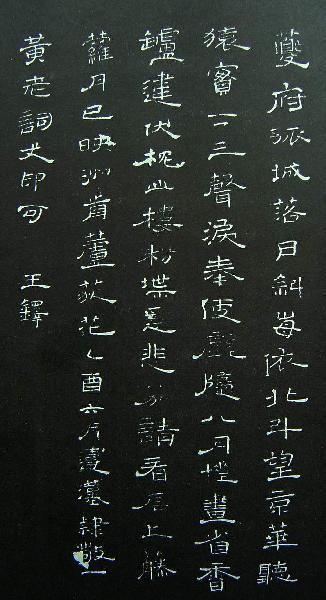 夔府孤城落日斜每依北斗望京華聽
猿實下三聲淚奉使虛隨八月槎畫省香
鑪違伏枕山樓粉堞隱悲笳請看石上藤
蘿月已映洲前蘆荻花乙酉六月隸敬
黃老詞丈印可 王鐸